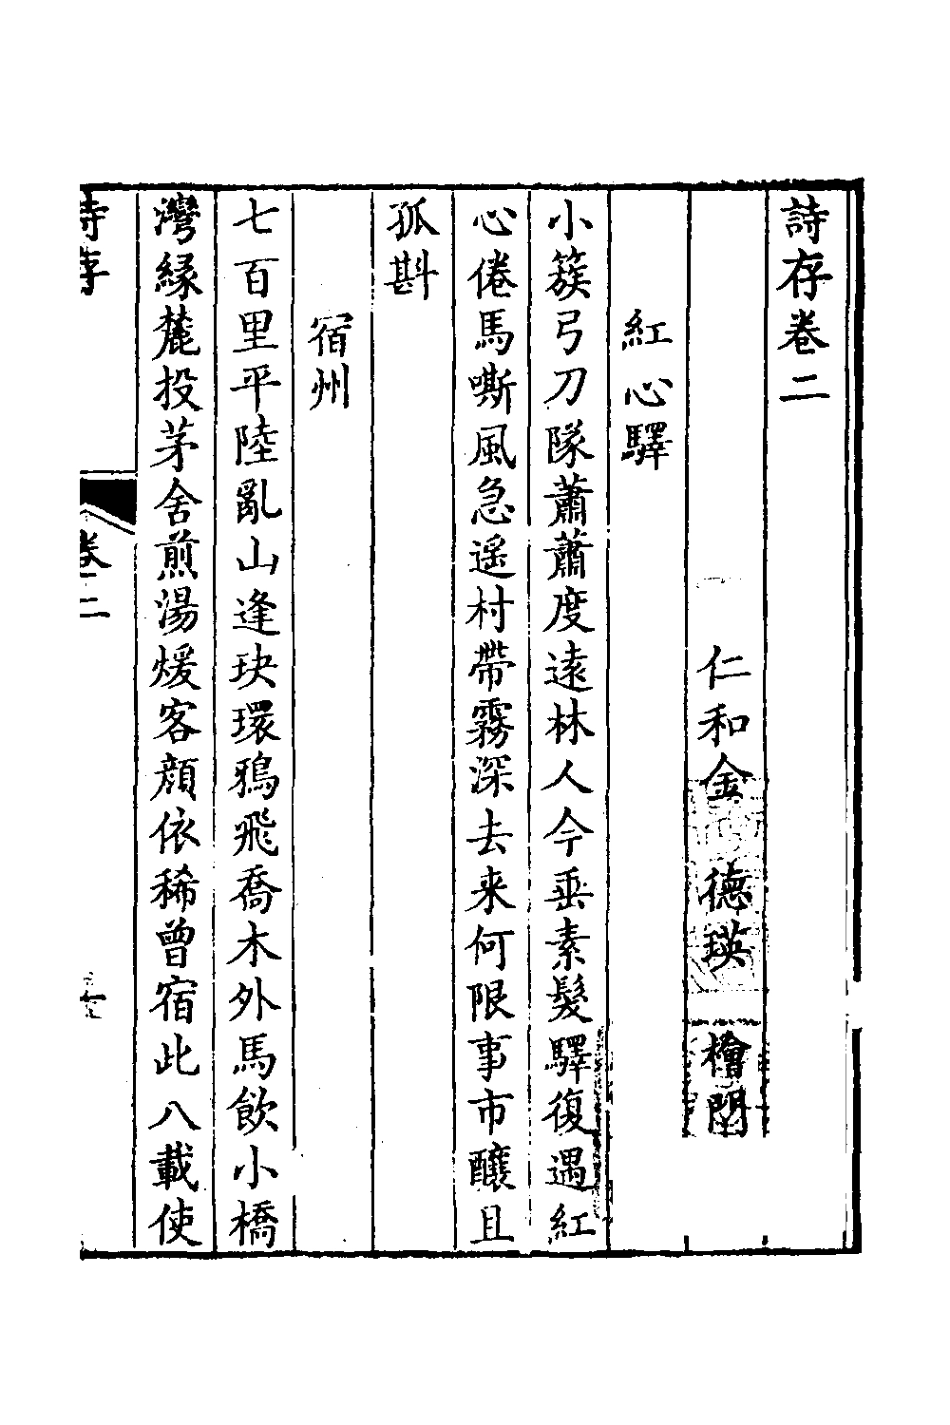 詩存卷二
仁和金德瑛檜門
紅心驛
小簇弓刀隊蕭蕭度遠林人今垂素髮驛復遇紅
心倦馬嘶風急遥村帶霧深去来何限事市釀且
孤斟
宿州
七百里平陸亂山逢玦環鴉飛喬木外馬飲小橋
灣緣麓投茅舍煎湯煖客顔依稀曾宿此八載使
詩存
卷二